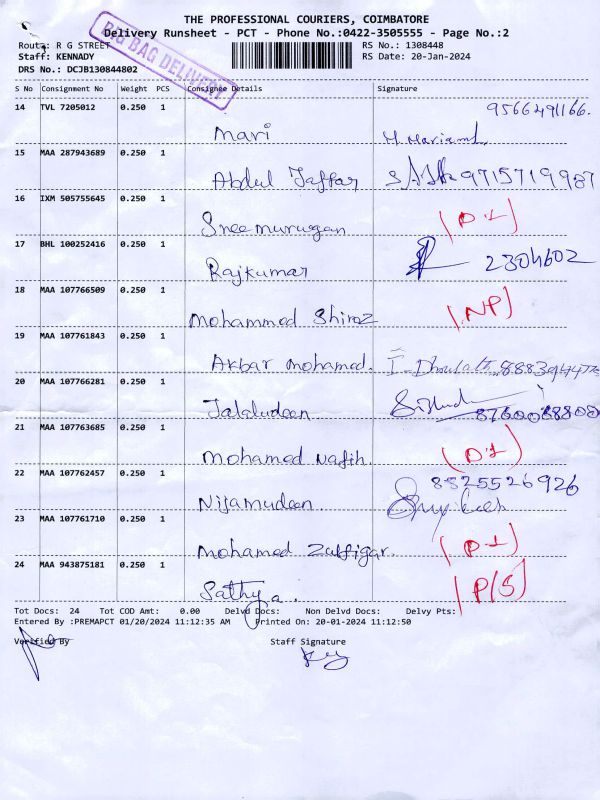 THE PROFESSIONAL COURIERS, COIMBATORE
Delivery Runsheet - PCT - Phone No.:0422-3505555 - Page No.:2
Route: R G STREET
RS No.: 1308448
Staff: KENNADY
RS Date: 20-Jan-2024
DRS No.: DCJB130844802
BIG BAG DELIVERY
S No Consignment No Weight PCS Consignee Details Signature
14 TVL 7205012 0.250 1 9566491166.
Mari
15 MAA 287943689 0.250 1
Abdul Jaffar 9715719987
16 IXM 505755645 0.250 1
Sneemurugan (D1)
17 BHL 100252416 0.250 1
Rajkumar 2304602
18 MAA 107766509 0.250 1
Mohammed Shiraz (NP)
19 MAA 107761843 0.250 1
Akbar Mohamed.
20 MAA 107766281 0.250 1
Jalaludeen
21 MAA 107763685 0.250 1
Mohamed Nafih. (D1)
22 MAA 107762457 0.250 1 8525526926
Nijamudeen
23 MAA 107761710 0.250 1
Mohamed Zulfigar. (D1)
24 MAA 943875181 0.250 1
Sathya. (P/S)
Tot Docs: 24 Tot COD Amt: 0.00 Delvd Docs: Non Delvd Docs: Delvy Pts:
Entered By :PREMAPCT 01/20/2024 11:12:35 AM Printed On: 20-01-2024 11:12:50
Verified By Staff Signature